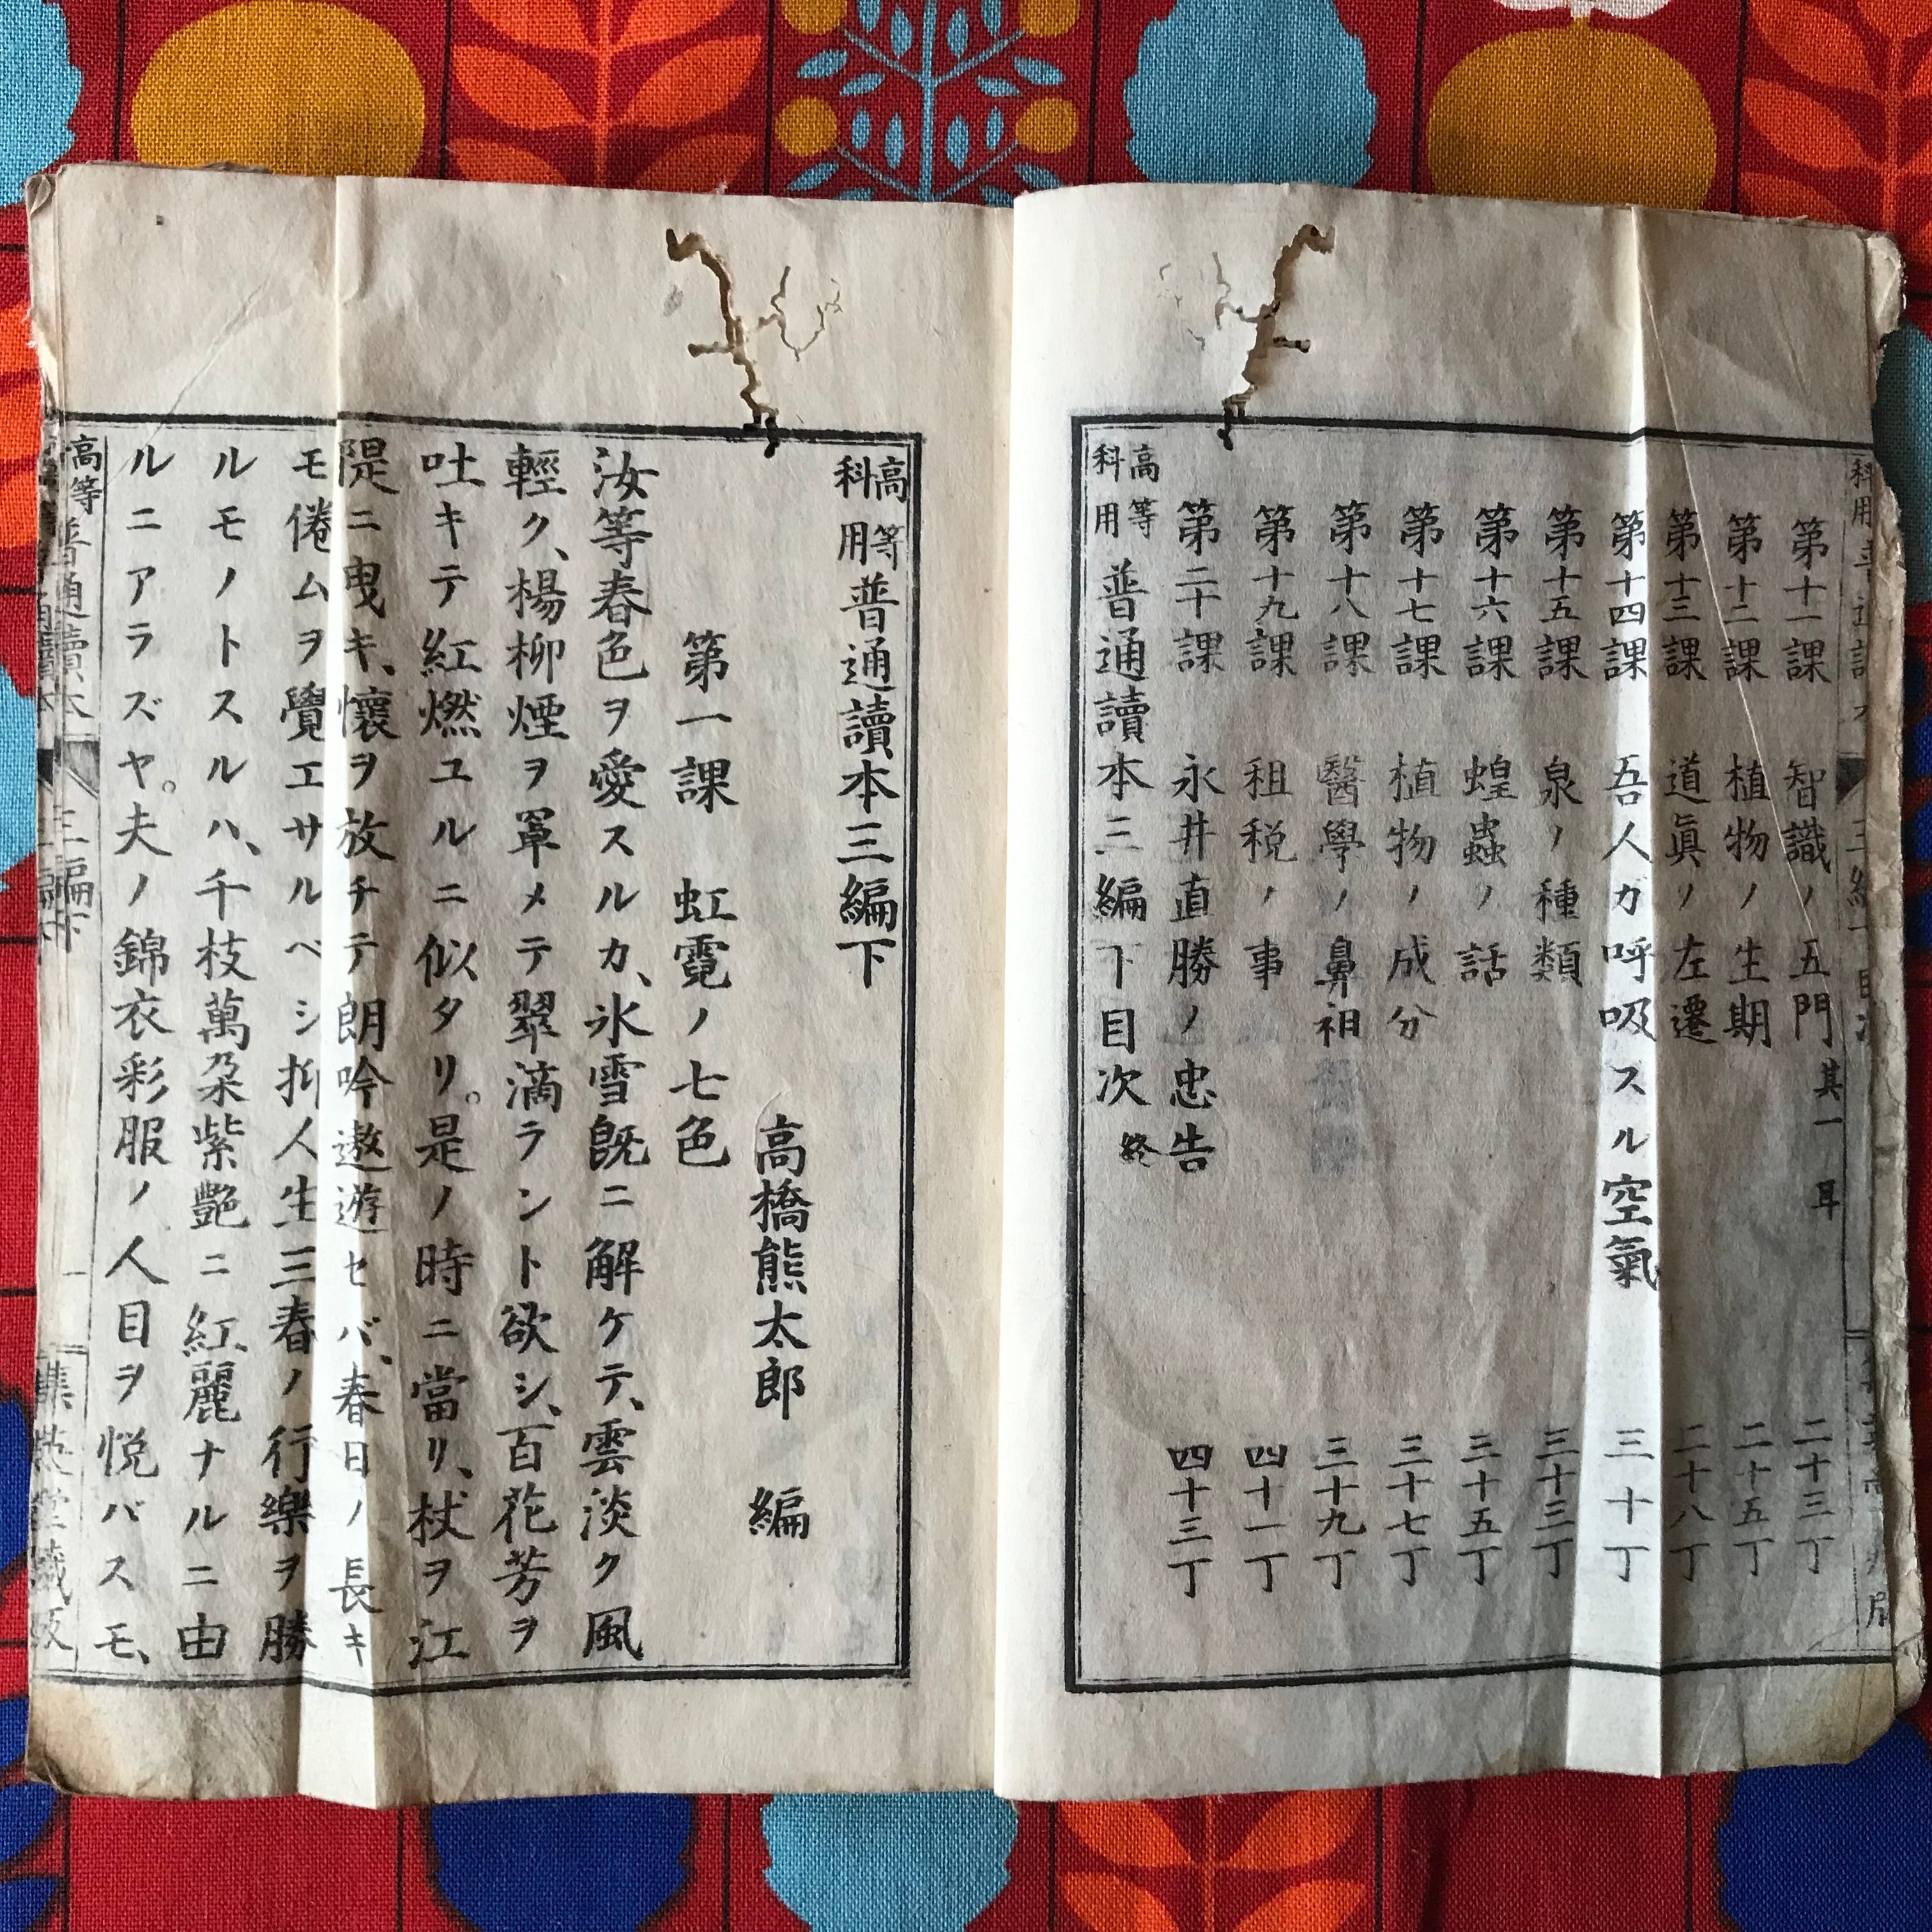 第十一課 智識ノ五門 其一 耳 二十三丁
第十二課 植物ノ生期 二十五丁
第十三課 道眞ノ左遷 二十八丁
第十四課 吾人ガ呼吸スル空氣 三十丁
第十五課 泉ノ種類 三十三丁
第十六課 蝗蟲ノ話 三十五丁
第十七課 植物ノ成分 三十七丁
第十八課 醫學ノ鼻祖 三十九丁
第十九課 租税ノ事 四十一丁
第二十課 永井直勝ノ忠告 四十三丁
高等科用 普通讀本三編下目次 終
高等科用 普通讀本三編下
高橋熊太郎 編
第一課 虹霓ノ七色
汝等春色ヲ愛スルカ、氷雪既ニ解ケテ、雲淡ク風
輕ク、楊柳煙ヲ罩メテ翠滴ラント欲シ、百花芳ヲ
吐キテ紅燃ユルニ似タリ。是ノ時ニ當リ、杖ヲ江
隄ニ曳キ、懷ヲ放チテ朗吟遨遊セバ、春日ノ長キ
モ倦ムヲ覺エサルベシ抑人生三春ノ行樂ヲ勝
ルモノトスルハ、千枝萬朶紫艷ニ紅麗ナルニ由
ルニアラズヤ。夫ノ錦衣彩服ノ人目ヲ悦バスモ、
高等 普通讀本 三編下 一 集英堂藏版